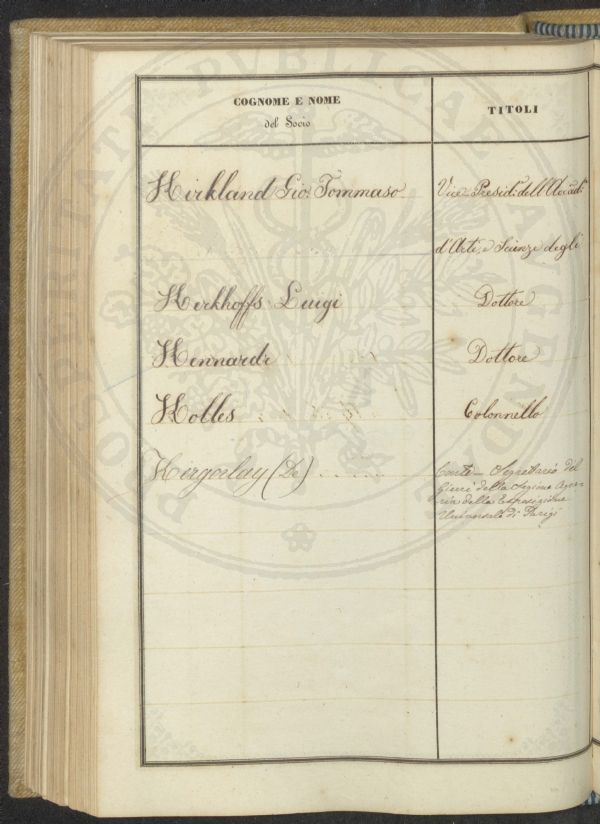 COGNOME E NOME
del Socio
TITOLI
Kirkland Gio: Tommaso
Vice Presid.e dell'Accad.a
d'Arti, e Scienze degli
Kerkhoffs Luigi
Dottore
Kennardi
Dottore
Kolles
Colonnello
Kergorlay (De)
Conte - Segretario del
Giurì della Sezione
della Esposizione
Universale di Parigi
PROSPERITATI PUBLICAE AUGENDAE